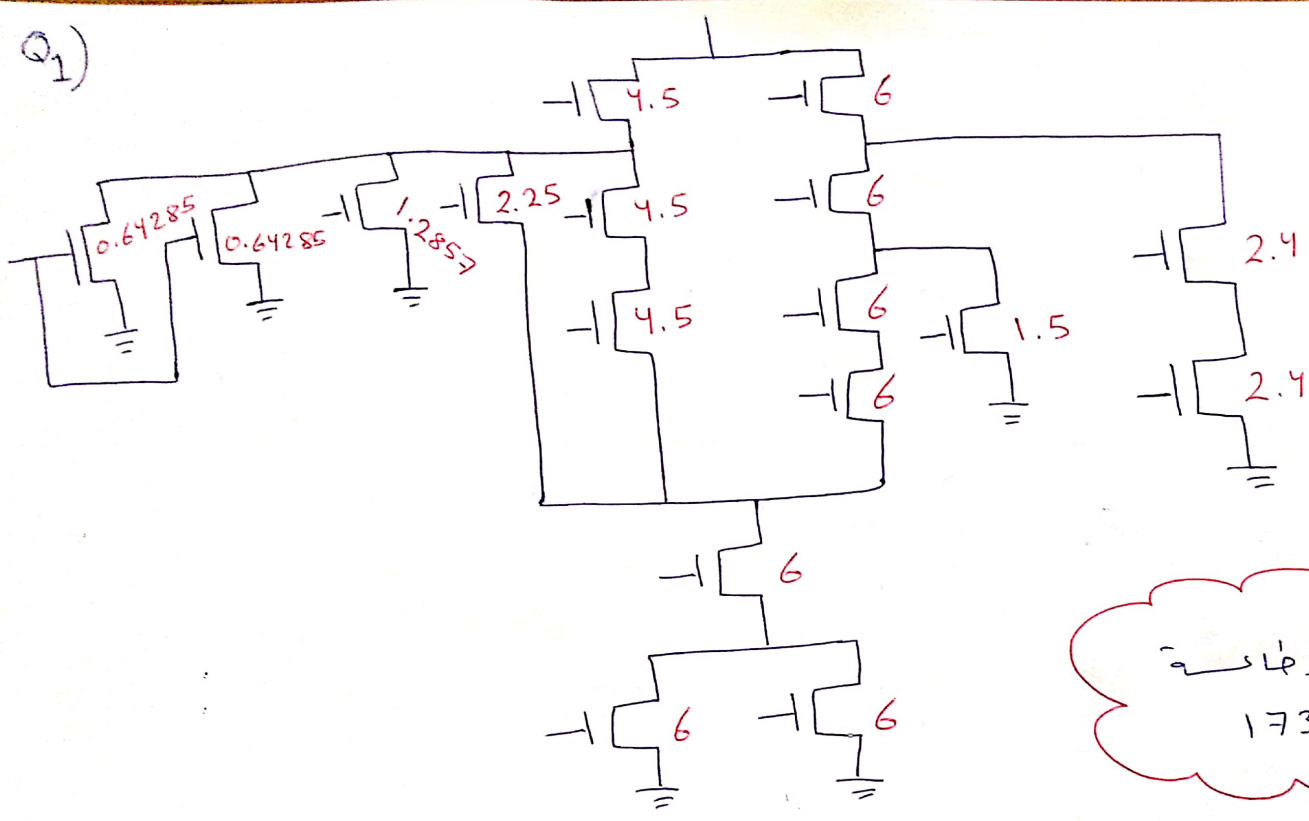 Q1)
4.5 6
0.64285 0.64285 1.2857 2.25 4.5 6 2.4
4.5 6 1.5
6 2.4
6
6 6
173